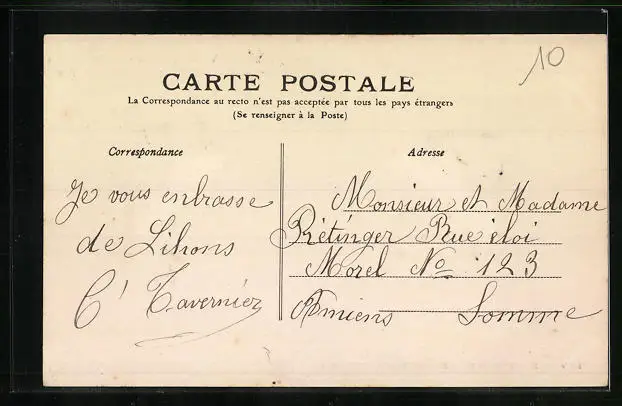 10
CARTE POSTALE
La Correspondance au recto n'est pas acceptée par tous les pays étrangers
(Se renseigner à la Poste)
Correspondance
Je vous enbrasse
de Lihons
C' Taverniez
Adresse
Monsieur et Madame
Rétinger Rue éloi
Morel No 123
Amiens Somme